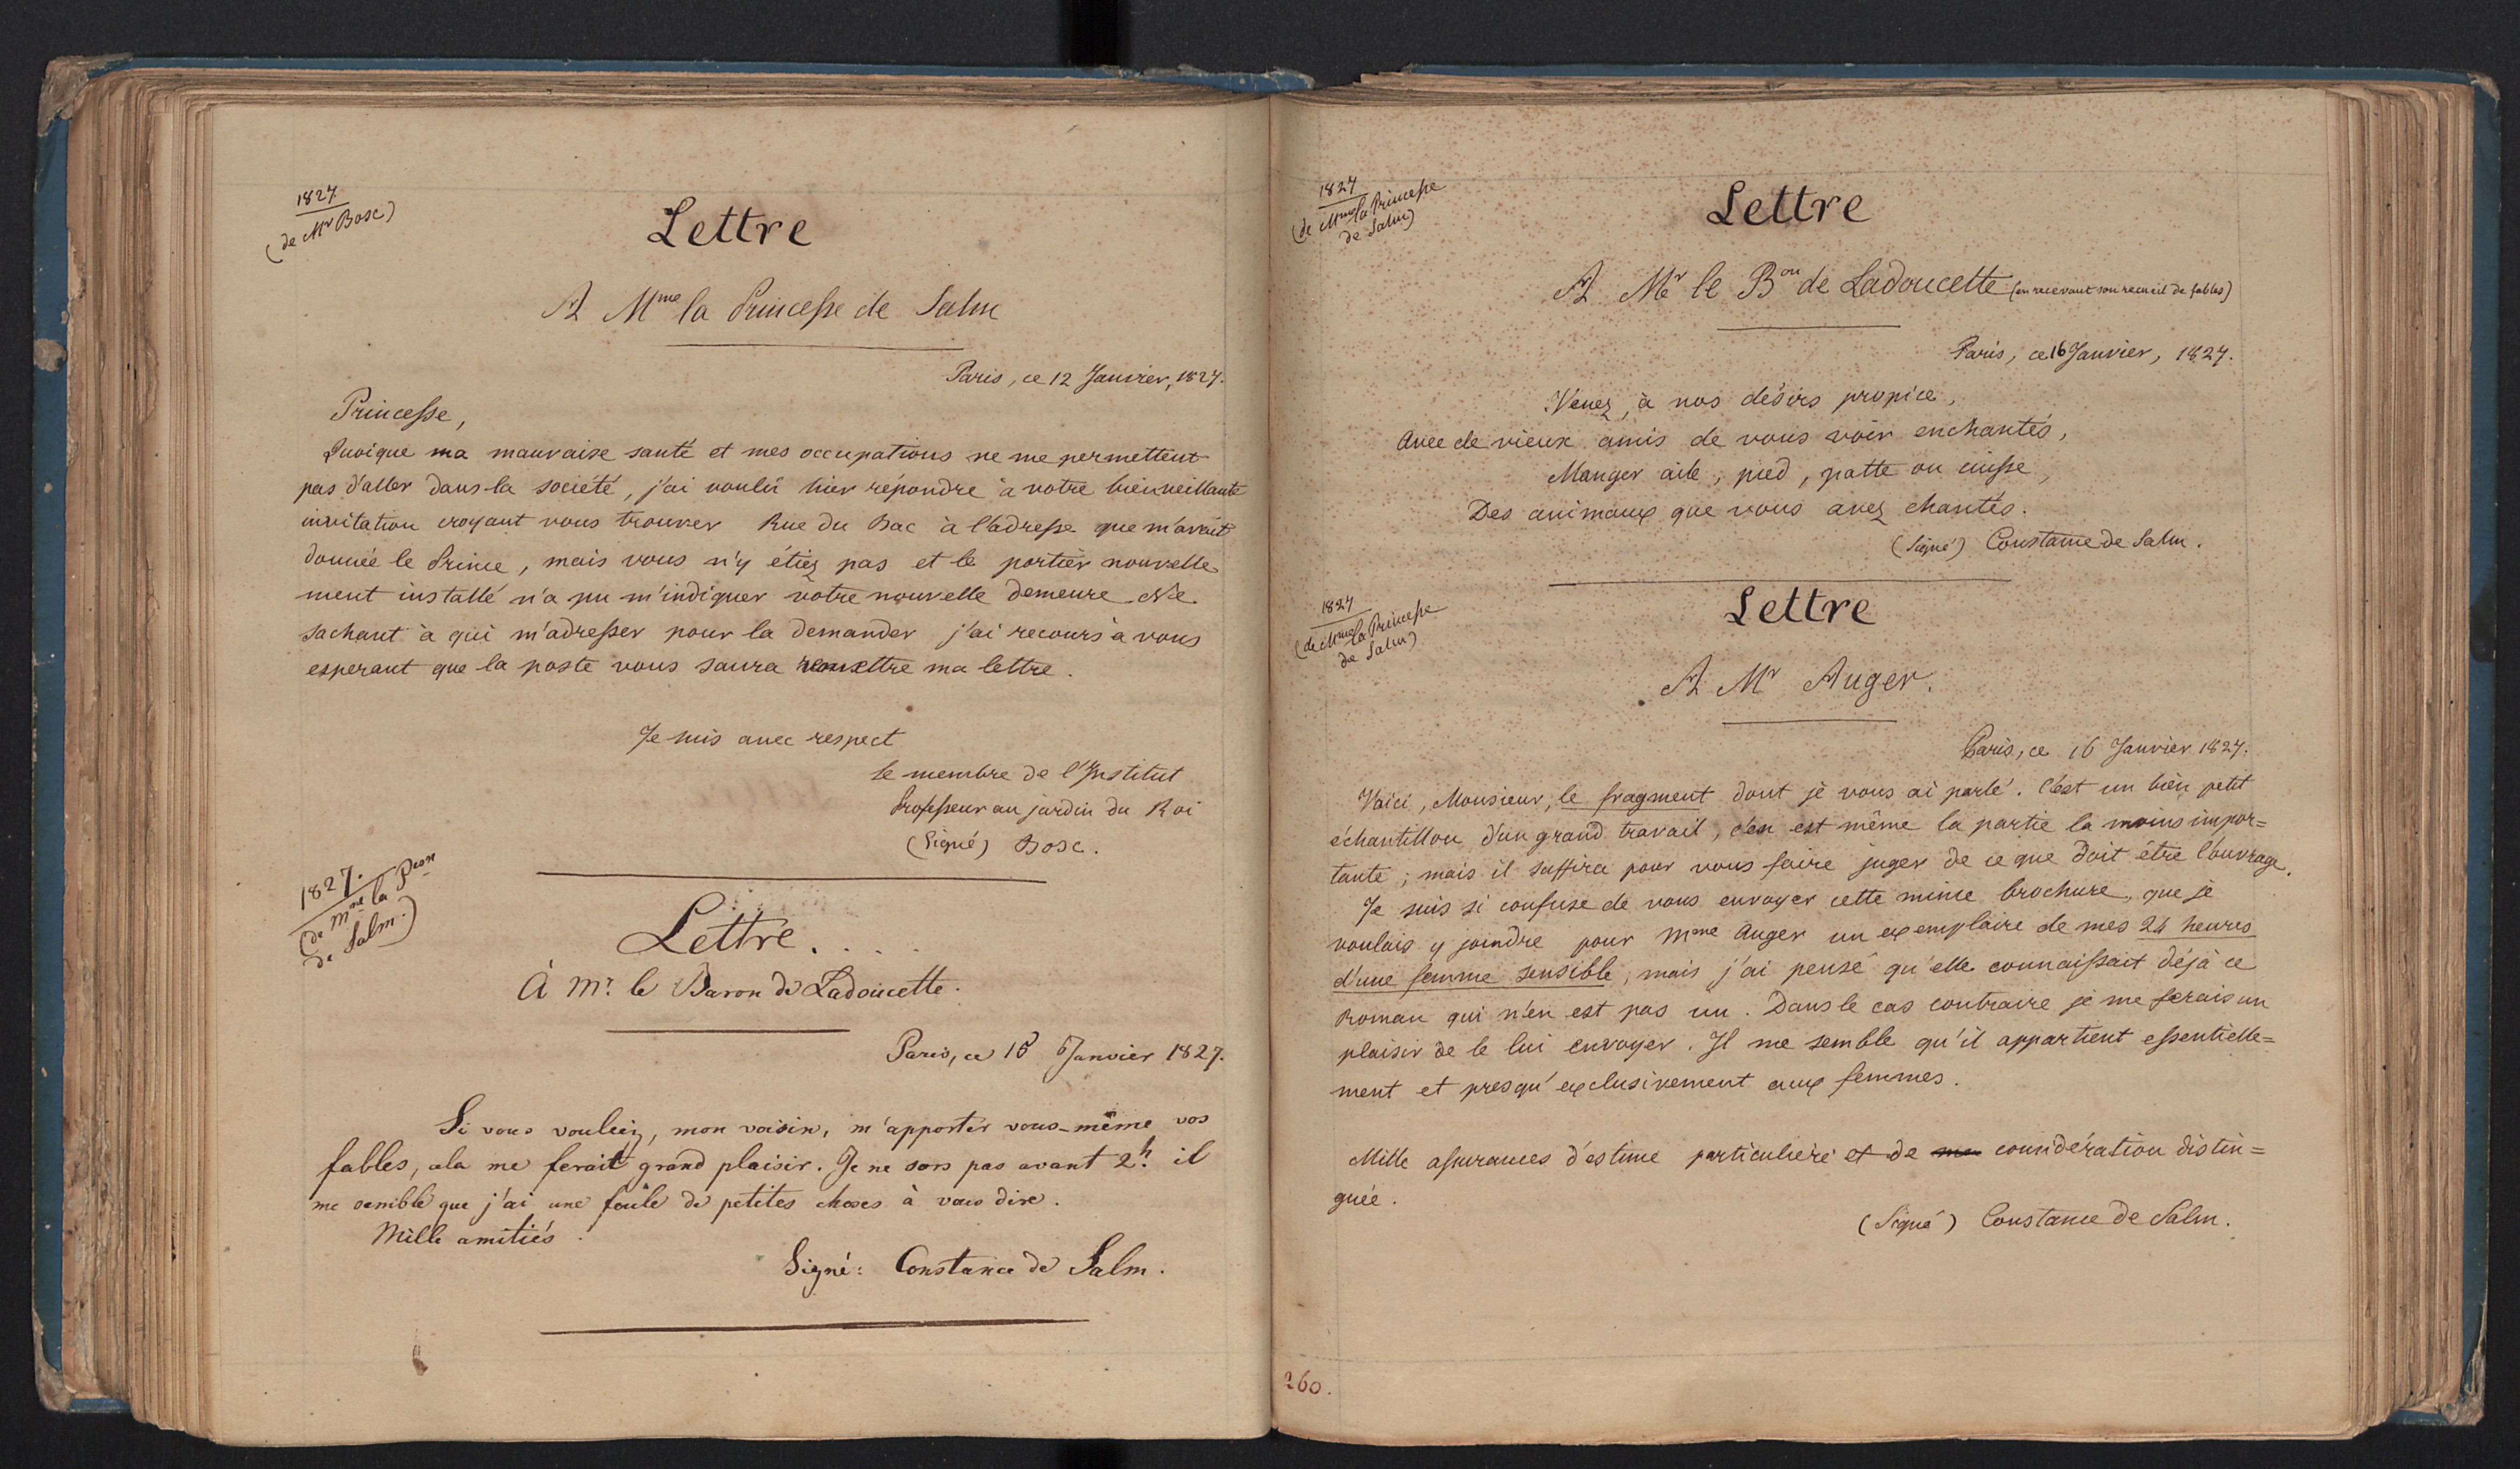 1827
(de Mr Bosc)
Lettre
A Mme la Princesse de Salm
Paris, ce 12 Janvier, 1827.
Princesse,
Quoique ma mauvaise santé et mes occupations ne me permettent
pas d'aller dans la société, j'ai voulu hier répondre à votre bienveillante
invitation croyant vous trouver Rue du Bac à l'adresse que m'avait
donnée le Prince, mais vous n'y étiez pas et le portier nouvelle
ment installé n'a pu m'indiquer votre nouvelle demeure. Ne
sachant à qui m'adresser pour la demander j'ai recours à vous
esperant que la poste vous saura remettre ma lettre.
Je suis avec respect
le membre de l'Institut
Professeur au jardin du Roi
(Signé) Bosc.
1827.
(de Mme la Pcesse
de Salm.)
Lettre.
À Mr. le Baron de Ladoucette.
Paris, ce 16 Janvier 1827.
Si vous vouliez, mon voisin, m'apporter vous-même vos
fables, cela me ferait grand plaisir. Je ne sors pas avant 2h. il
me semble que j'ai une foule de petites choses à vous dire.
Mille amitiés.
Signé: Constance de Salm.
1827
(de Mme la Princesse
de Salm)
Lettre
A Mr le Bon de Ladoucette (en recevant son recueil de fables)
Paris, ce 16 Janvier, 1827.
Venez, à nos désirs propice,
Avec de vieux amis de vous voir enchantés,
Manger aile, pied, patte ou cuisse,
Des animaux que vous avez chantés.
(Signé) Constance de Salm.
1827
(de Mme la Princesse
de Salm)
Lettre
A Mr Auger.
Paris, ce 16 Janvier 1827.
Voici, Monsieur, le fragment dont je vous ai parlé. C'est un bien petit
échantillon d'un grand travail, c'en est même la partie la moins impor=
tante; mais il suffira pour vous faire juger de ce que doit être l'ouvrage.
Je suis si confuse de vous envoyer cette mince brochure, que je
voulais y joindre pour Mme Auger un exemplaire de mes 24 heures
d'une femme sensible, mais j'ai pensé qu'elle connaissait déjà ce
Roman qui n'en est pas un. Dans le cas contraire je me ferais un
plaisir de le lui envoyer. Il me semble qu'il appartient essentielle=
ment et presqu'exclusivement aux femmes.
Mille assurances d'estime particulière et de considération distin=
guée.
(Signé) Constance de Salm.
260.